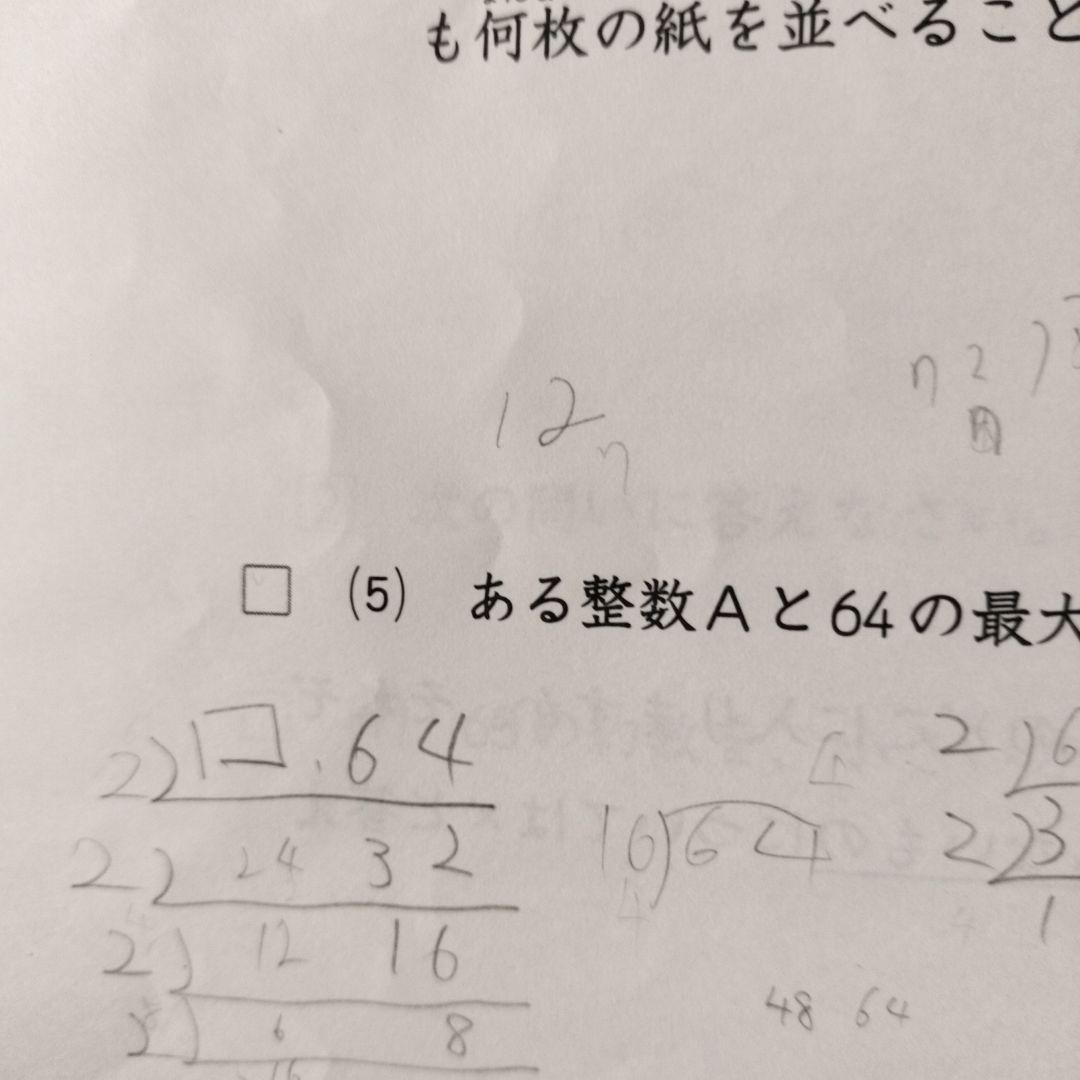 も何枚の紙を並べること
12
(5) ある整数Aと64の最大
2)□.64
2)24 32
2)12 16
2)6 8
16)64
2)6
2)3
1
48 64